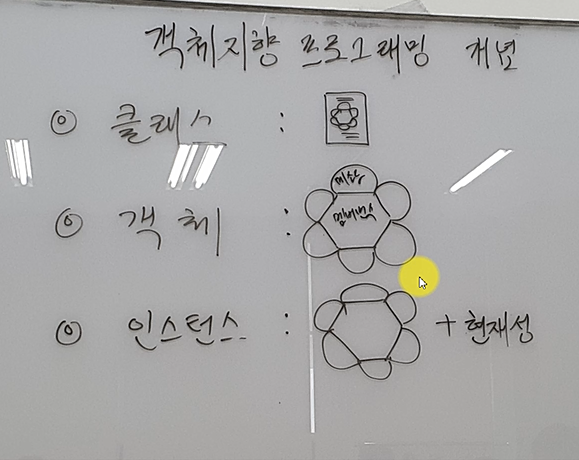 객체지향 프로그래밍 개념
◎ 클래스 :
◎ 객체 :
멤버변수
◎ 인스턴스 : + 현재성